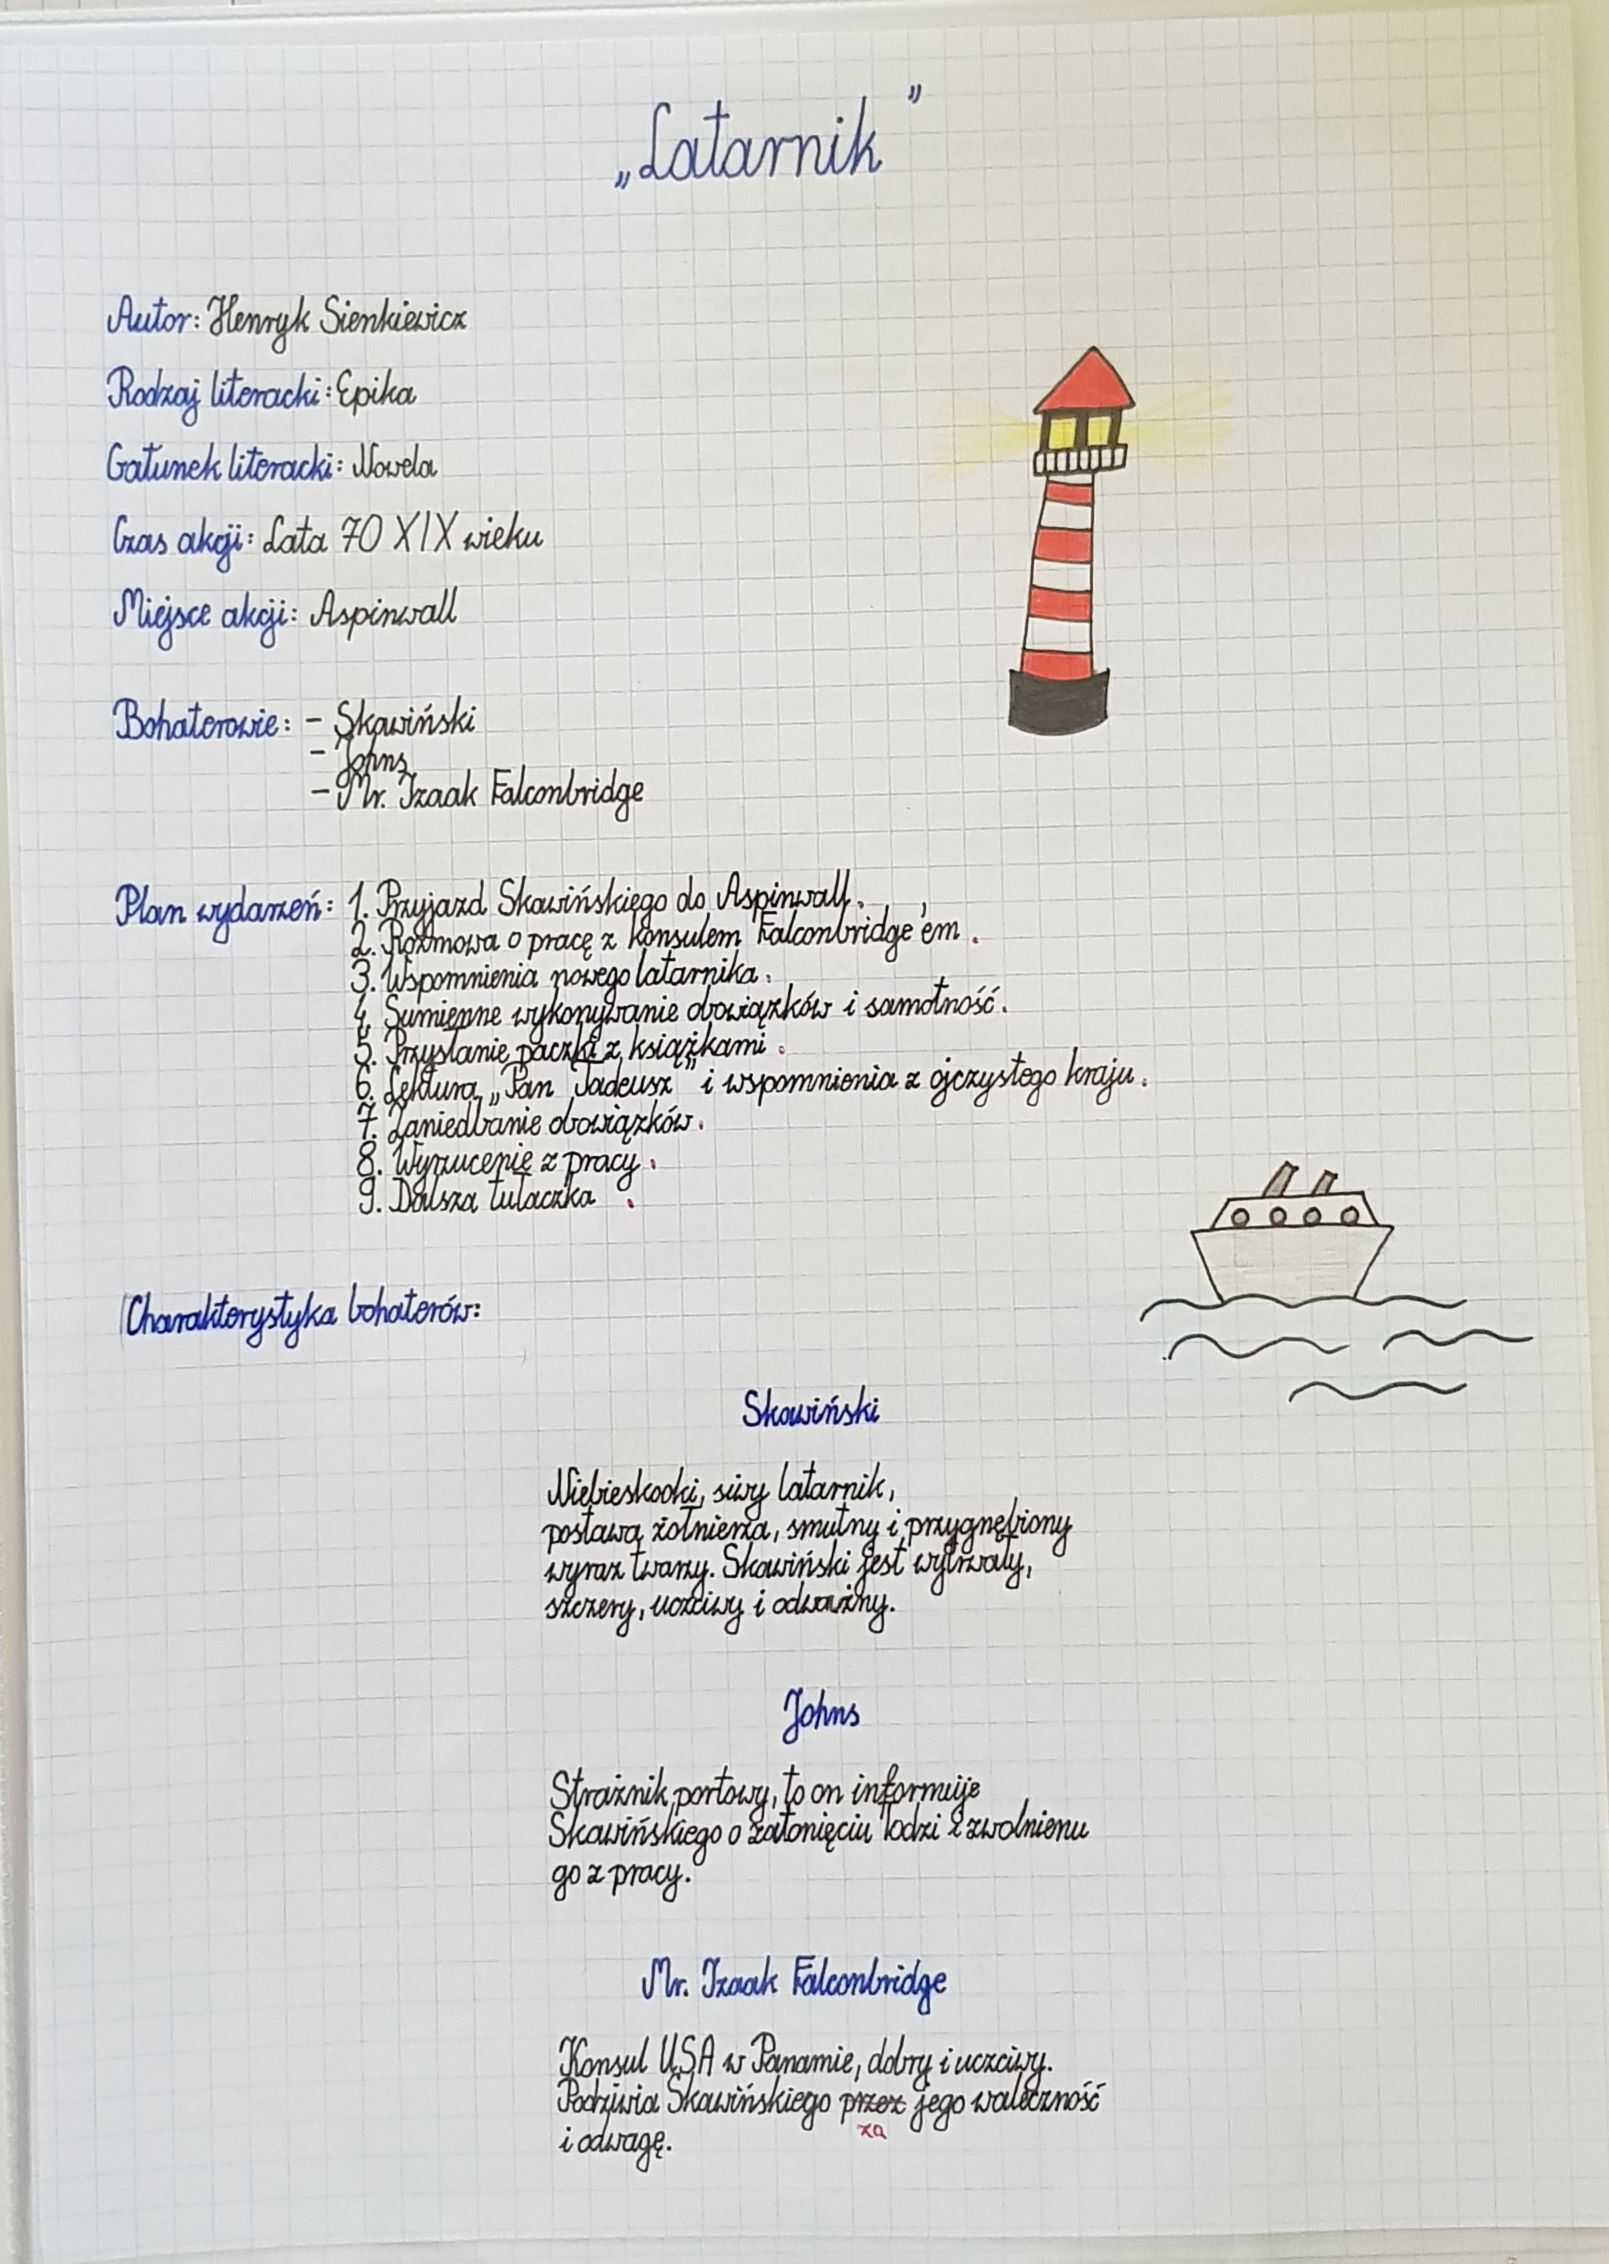 „Latarnik”
Autor: Henryk Sienkiewicz
Rodzaj literacki: Epika
Gatunek literacki: Nowela
Czas akcji: Lata 70 XIX wieku
Miejsce akcji: Aspinwall
Bohaterowie: - Skawiński
- Johns
- Mr. Izaak Falconbridge
Plan wydarzeń: 1. Przyjazd Skawińskiego do Aspinwall.
2. Rozmowa o pracę z konsulem Falconbridge'em.
3. Wspomnienia nowego latarnika.
4. Sumienne wykonywanie obowiązków i samotność.
5. Przysłanie paczki z książkami.
6. Lektura „Pan Tadeusz” i wspomnienia z ojczystego kraju.
7. Zaniedbanie obowiązków.
8. Wyrzucenie z pracy.
9. Dalsza tułaczka.
Charakterystyka bohaterów:
Skawiński
Niebieskooki, siwy latarnik,
postawa żołnierza, smutny i przygnębiony
wyraz twarzy. Skawiński jest wytrwały,
szczery, uczciwy i odważny.
Johns
Strażnik portowy, to on informuje
Skawińskiego o zatonięciu łodzi i zwolnieniu
go z pracy.
Mr. Izaak Falconbridge
Konsul USA w Panamie, dobry i uczciwy.
Podziwia Skawińskiego przez jego waleczność
za
i odwagę.